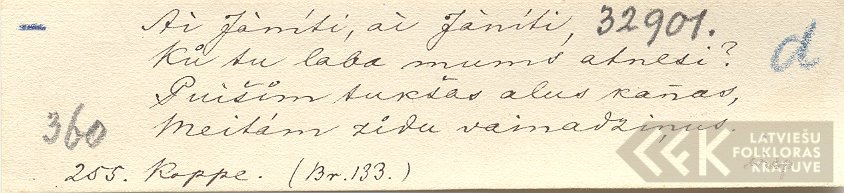 Ai Jānīti, ai Jānīti, 32901.
Ků tu laba mums atnesi?
d
Puišìm tukšas alus kaņas,
360
Meitám zīdu vainadziņus.
LATVIEŠU
FOLKLORAS
KRĀTUVE
255. Koppe. (Br. 133.)